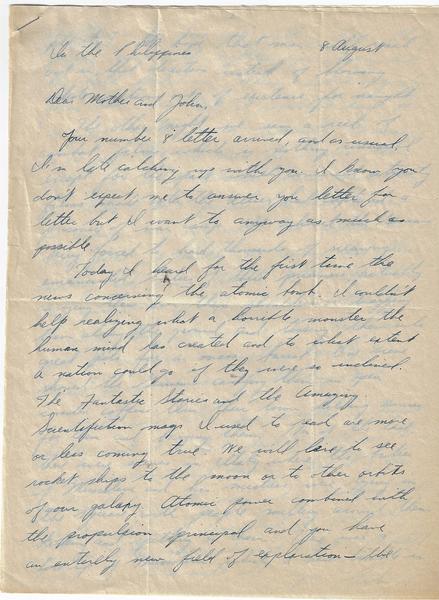 In the Philippines 8 August
Dear Mother and John,
Your number 8 letter arrived, and as usual
I'm late catching up with you. I know you
don't expect me to answer you letter for
letter but I want to anyway as much as
possible.
Today I heard for the first time the
news concerning the atomic bomb. I couldn't
help realizing what a horrible monster the
human mind has created and to what extent
a nation could go if they were so inclined.
The Fantastic Stories and the Amazing
Scientifiction mags I used to read are more
or less coming true. We will have to see
rocket ships to the moon or to other orbits
of our galaxy. Atomic power combined with
the propulsion principal and you have
an entirely new field of exploration — the